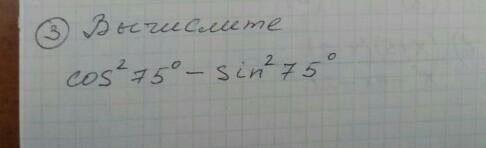 ③ Вычислите
cos²75° - sin²75°